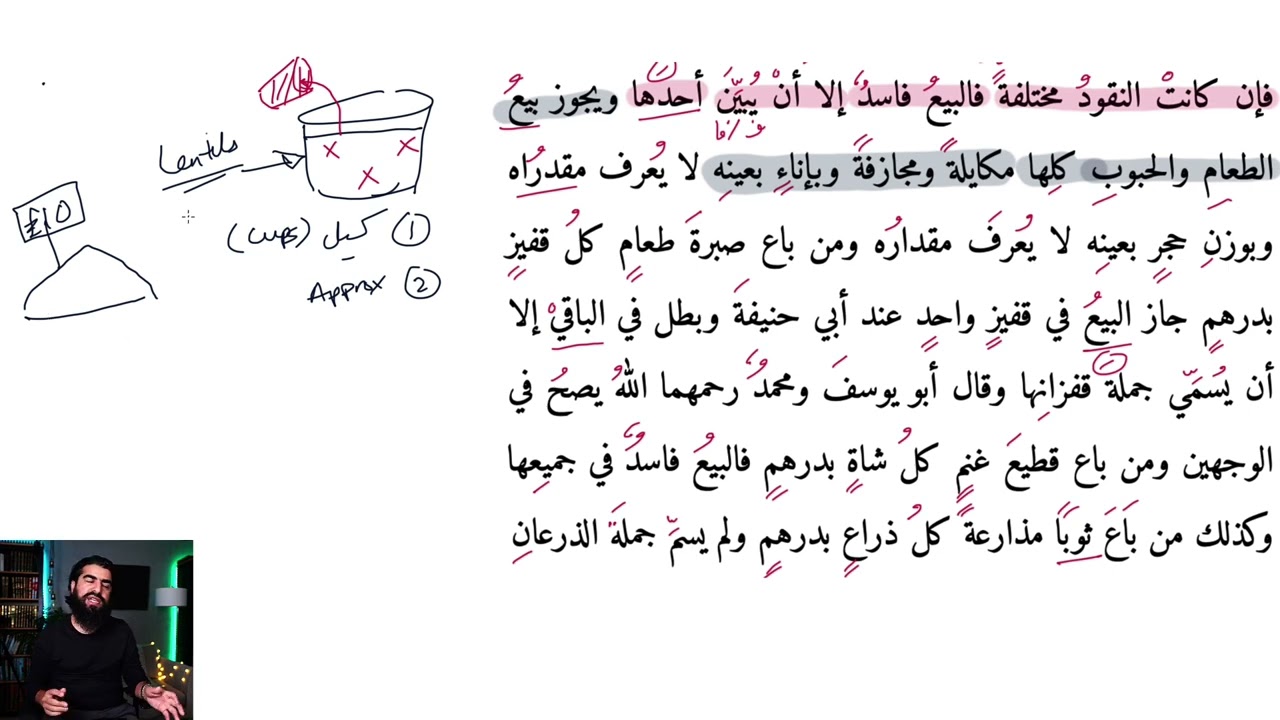 فإن كانتْ النقودُ مختلفةً فالبيعُ فاسدٌ إلا أنْ يُبيِّنَ أحدَها ويجوز بيعُ
الطعامِ والحبوبِ كلِها مكايلةً ومجازفةً وبإناءٍ بعينِه لا يعُرف مقدرُاه
وبوزنِ حجرٍ بعينِه لا يعُرفَ مقدارُه ومن باع صبرةَ طعامٍ كلُ قفيزٍ
بدرهمٍ جاز البيعُ في قفيزٍ واحدٍ عند أبي حنيفةَ وبطل في الباقيْ إلا
أن يسُمَّي جملةَ قفزانِها وقال أبو يوسفَ ومحمدٌ رحمهما اللهُ يصحُ في
الوجهين ومن باع قطيعَ غنمٍ كلُ شاةٍ بدرهمٍ فالبيعُ فاسدٌ في جميعِها
وكذلك من باَعَ ثوبًا مذارعةً كلُ ذراعٍ بدرهمٍ ولم يسمِّ جملةَ الذرعانِ
Lentils
£10
① كيل (cups)
② Approx